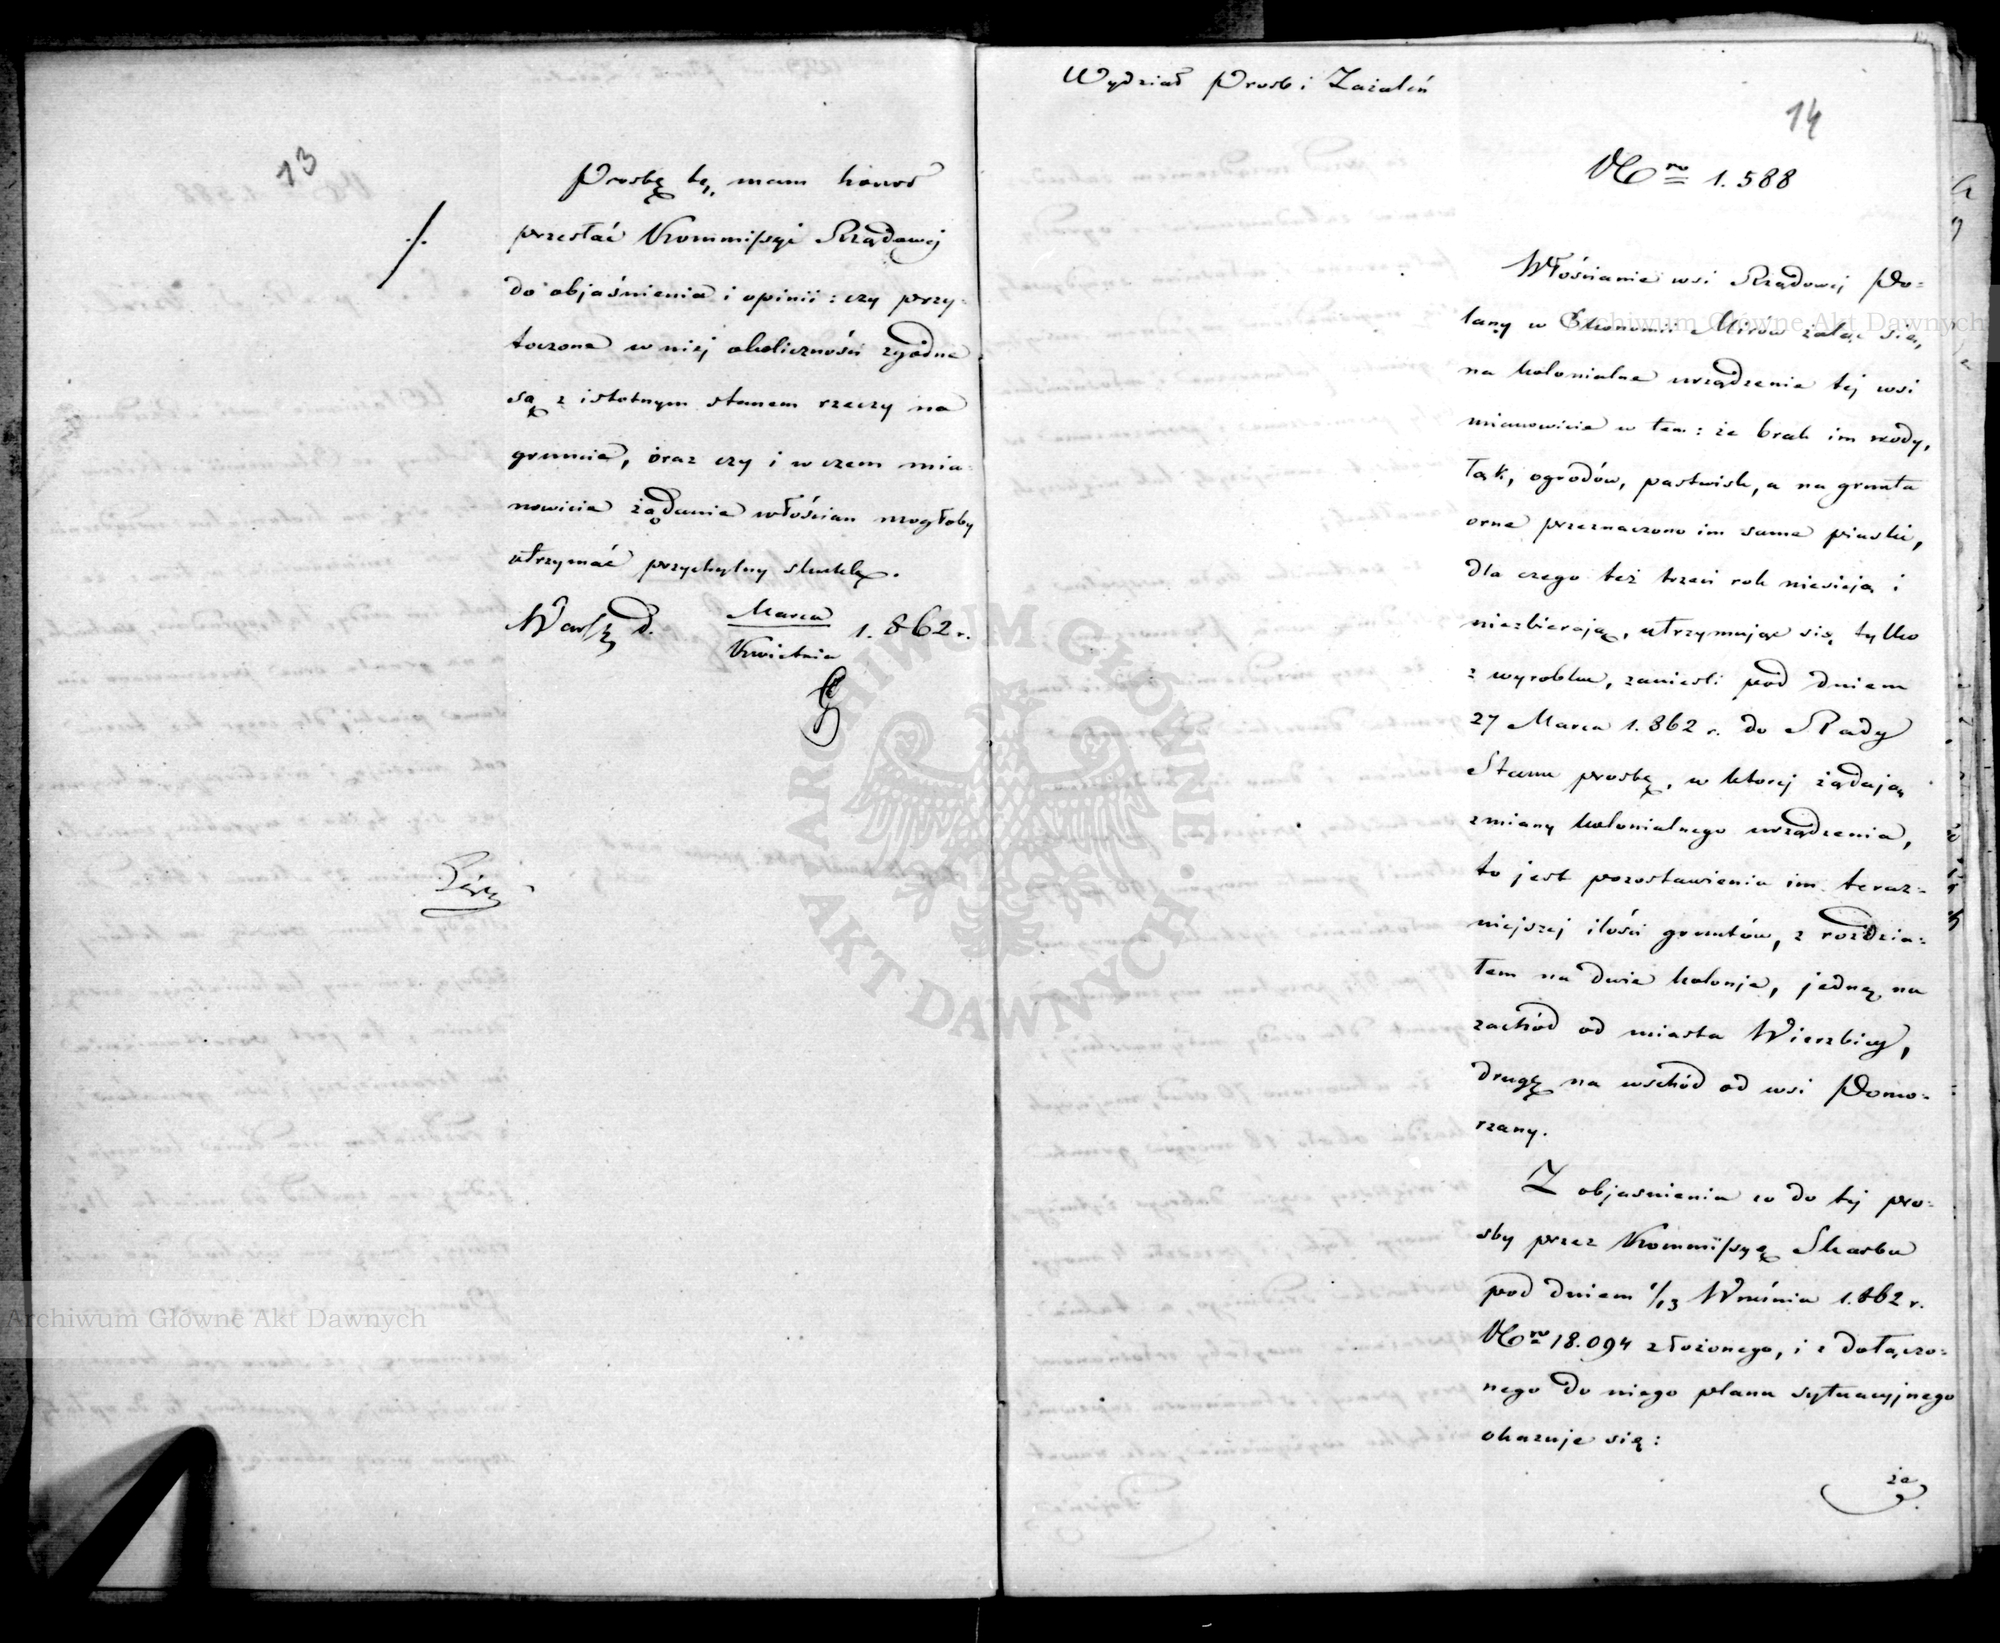 13
Prosbę tę, mam honor
przesłać Kommissyi Rządowej
do objaśnienia i opinii: czy przy-
toczone w niej okoliczności zgodne
są z istotnym stanem rzeczy na
gruncie, oraz czy i w czem mia-
nowicie żądanie włościan mogłoby
otrzymać przychylny skutek.
Warsz. d. Marca
Kwietnia 1.862 r.
Wydział Prosb i Zażaleń
14
Nro 1.588
Włościanie wsi Rządowej Po-
lany w Ekonomii Mirów żaląc się,
na kolonialne urządzenie tej wsi
mianowicie w tem: że brak im wody,
łąk, ogrodów, pastwisk, a na grunta
orne przeznaczono im same piaski,
dla czego też trzeci rok niesieją i
niezbierają, utrzymując się tylko
z wyrobku, zanieśli pod dniem
27 Marca 1.862 r. do Rady
Stanu prosbę, w ktorej żądają
zmiany kolonialnego urządzenia,
to jest pozostawienia im teraz-
niejszej ilości gruntów, z rozdzia-
łem na dwie kolonje, jednę na
zachód od miasta Wierzbicy,
drugę na wschód od wsi Pomo-
rzany.
Z objasnienia co do tej pro-
sby przez Kommissyę Skarbu
pod dniem 1/13 Wrśnia 1.862 r.
Nro 18.094 złożonego, i z dołączo-
nego do niego planu sytuacyjnego
okazuje się:
że
Archiwum Główne Akt Dawnych
Archiwum Główne Akt Dawnych
ARCHIWUM GŁÓWNE AKT DAWNYCH